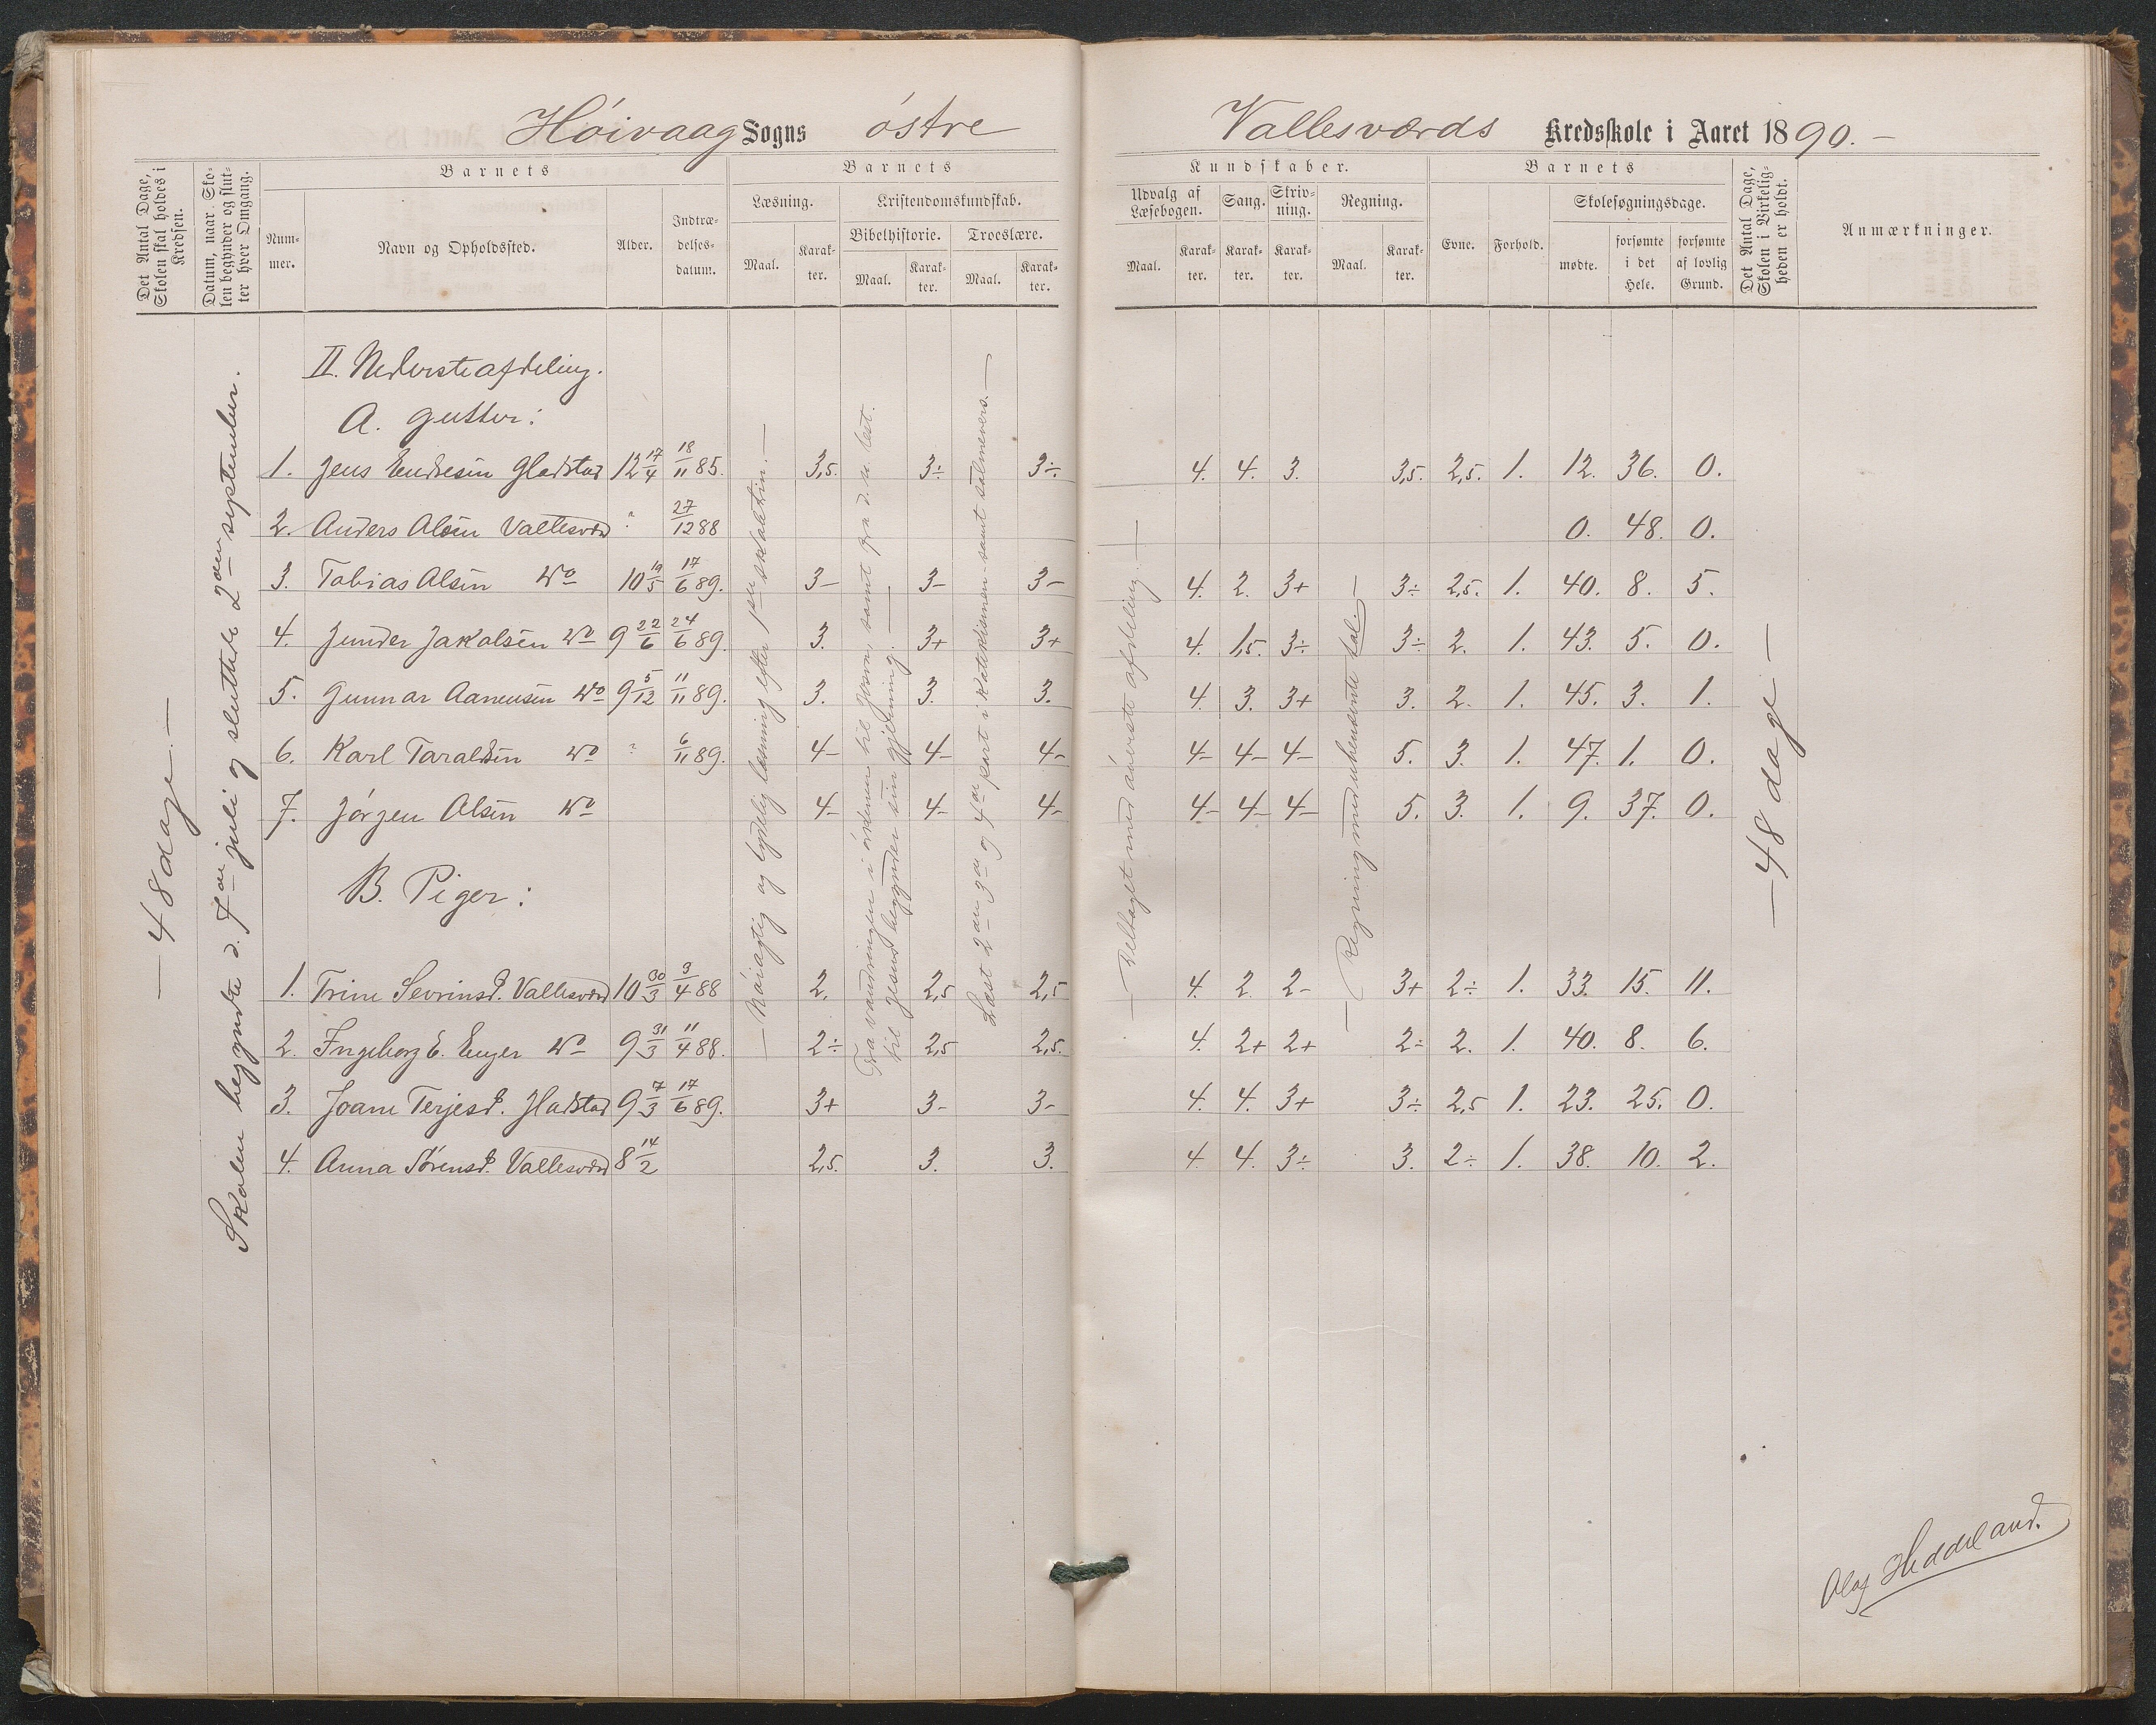 Høivaag Sogns østre Vallesværds Kredsskole i Aaret 1890. –
Det Antal Dage, Skolen skal holdes i Kredsen.
Datum, naar Skolen begynder og slutter hver Omgang.
Barnets
Nummer.
Navn og Opholdssted.
Alder.
Indtrædelsesdatum.
Barnets
Læsning.
Maal.
Karakter.
Kristendomskundskab.
Bibelhistorie.
Maal.
Karakter.
Troeslære.
Maal.
Karakter.
Kundskaber.
Udvalg af Læsebogen.
Maal.
Karakter.
Sang.
Karakter.
Skrivning.
Karakter.
Regning.
Maal.
Karakter.
Barnets
Evne.
Forhold.
Skolesøgningsdage.
mødte.
forsømte i det Hele.
forsømte af lovlig Grund.
Det Antal Dage, Skolen i Virkeligheden er holdt.
Anmærkninger.
– 48 dage. –
Skolen begyndte d. 7de juli og sluttede 2den september.
– Nøiagtig og tydelig læsning efter
Fra vandringen i ørkenen til samt fra d. n. test.
til Jesus begynder sin gjerning. –
Læst 2den 3de og 4de part i Katekismen samt salmevers. –
– Deltaget med øverste afdeling. –
– Regning med ubenævnte tal. –
– 48 dage –
II. Nederste afdeling.
A. gutter:
1. Jens Endresen Gladstad 12 17/4 18/11 85. 3,5. 3÷ 3÷. 4. 4. 3. 3,5. 2,5. 1. 12. 36. 0.
2. Anders Olsen Vallesvær ? 27/12 88 0. 48. 0.
3. Tobias Olsen do 10 19/5 17/6 89. 3– 3– 3– 4. 2. 3+ 3÷ 2,5. 1. 40. 8. 5.
4. Junder Jakobsen do 9 22/6 24/6 89. 3. 3+ 3+ 4. 1,5. 3÷ 3÷ 2. 1. 43. 5. 0.
5. Gunnar Aanensen do 9 5/12 11/11 89. 3. 3. 3. 4. 3. 3+ 3. 2. 1. 45. 3. 1.
6. Karl Taraldsen do ? 6/11 89. 4– 4– 4– 4– 4– 4– 5. 3. 1. 47. 1. 0.
7. Jørgen Olsen do 4– 4– 4– 4– 4– 4– 5. 3. 1. 9. 37. 0.
B. Piger:
1. Trine Sevrinsd. Vallesvær 10 30/3 3/4 88 2. 2,5 2,5 4. 2. 2– 3+ 2÷ 1. 33. 15. 11.
2. Ingeborg E. do 9 31/3 11/4 88. 2÷ 2,5 2,5. 4. 2+ 2+ 2÷ 2. 1. 40. 8. 6.
3. Joane Terjesd. Gladstad 9 7/3 17/6 89. 3+ 3– 3– 4. 4. 3+ 3÷ 2,5 1. 23. 25. 0.
4. Anna Sørensd. Vallesvær 8 14/2 2,5. 3. 3. 4. 4. 3÷ 3. 2÷ 1. 38. 10. 2.
Olaf Heddeland.